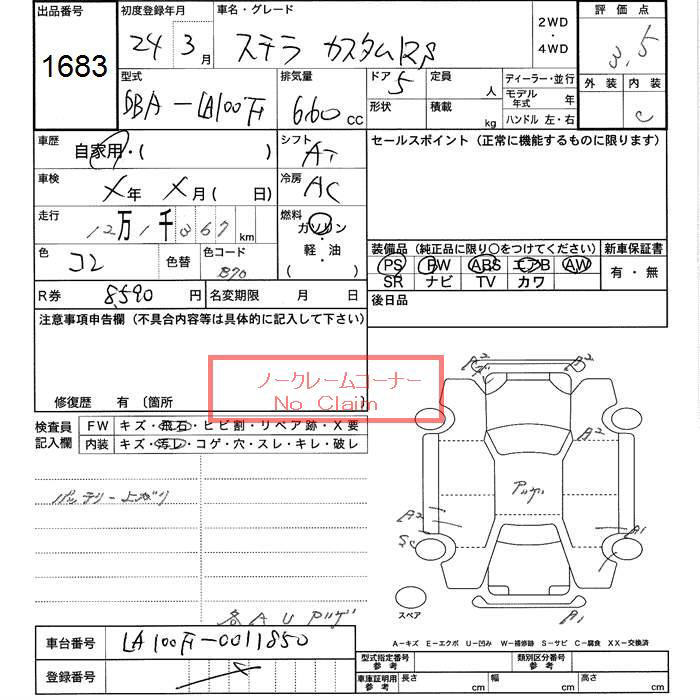 出品番号 初度登録年月 車名・グレード 2WD・4WD 評価点
1683 24年 3月 ステラ カスタムRS 3.5
型式 排気量 ドア 定員 ディーラー・並行 外装 内装
DBA-LA100F 660cc 5 人 モデル年式 年 C
形状 積載 kg ハンドル 左・右
車歴 自家用・( ) シフト AT セールスポイント (正常に機能するものに限ります)
車検 X年 X月( 日) 冷房 AC
走行 12万1千367km 燃料 ガソリン・軽・油 ( )
色 コン 色替 色コード B70
装備品 (純正品に限り○をつけてください) 新車保証書
PS PW ABS エアB AW 有・無
SR ナビ TV カワ
R券 8,590円 名変期限 月 日 後日品
注意事項申告欄 (不具合内容等は具体的に記入して下さい)
ノークレームコーナー
No Claim
修復歴 有 〔箇所 〕
検査員記入欄 FW キズ・飛石・ヒビ割・リペア跡・X要
内装 キズ・汚レ・コゲ・穴・スレ・キレ・破レ
A2 A2
A2
バッテリー上がり
アツゲ
A2 A1
SC
スペア
各AUアツゲ A1
車台番号 LA100F-0011850
A-キズ E-エクボ U-凹み W-補修跡 S-サビ C-腐食 XX-交換済
登録番号 X
型式指定番号 参考 類別区分番号 参考
車庫証明用 参考 長さ cm 幅 cm 高さ cm